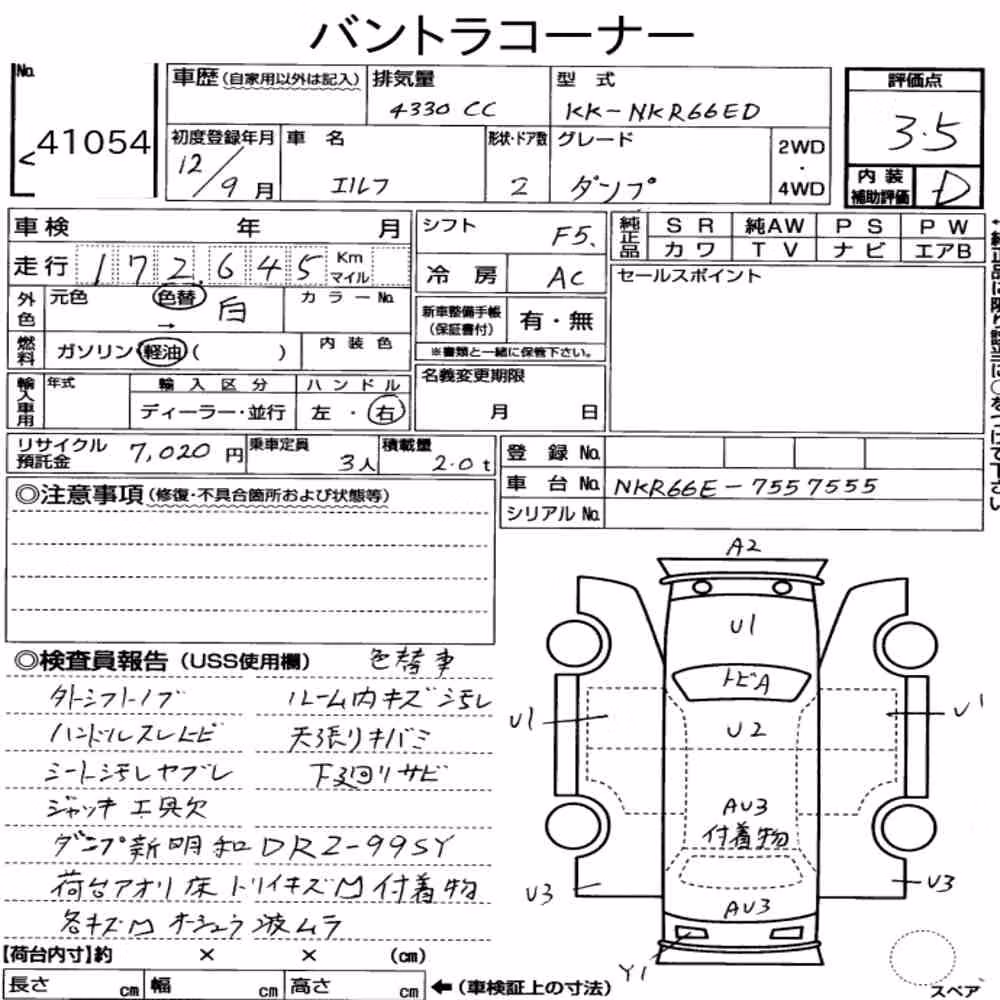 バントラコーナー
No. 41054
車歴(自家用以外は記入) 排気量 4330 CC 型式 KK-NKR66ED
評価点 3.5
初度登録年月 12/9月 車名 エルフ 形状・ドア数 2 グレード ダンプ 2WD・4WD
内装補助評価 D
車検 年 月
シフト F5.
純正品 SR 純AW PS PW
カワ TV ナビ エアB
走行 172,645 Km マイル
冷房 AC
セールスポイント
外色 元色 色替 → 白 カラーNo.
新車整備手帳(保証書付) 有・無
※書類と一緒に保管下さい。
燃料 ガソリン 軽油 ( ) 内装色
名義変更期限 月 日
輸入車用 年式 輸入区分 ハンドル
ディーラー・並行 左・右
リサイクル預託金 7,020円 乗車定員 3人 積載量 2.0t
登録No.
車台No. NKR66E-7557555
シリアルNo.
◎注意事項(修復・不具合箇所および状態等)
◎検査員報告(USS使用欄) 色替車
外シフトノブ ルーム内キズ汚レ
ハンドルスレ 天張りキバミ
シート汚レヤブレ 下廻りサビ
ジャッキ工具欠
ダンプ新明和DR2-99SY
荷台アオリ床 付着物
各キズ 波ムラ
【荷台内寸】約 × × (cm)
長さ cm 幅 cm 高さ cm ←(車検証上の寸法)
A2
U1
トビA
U1 U2 U1
AU3
付着物
U3 U3
AU3
Y1
スペア